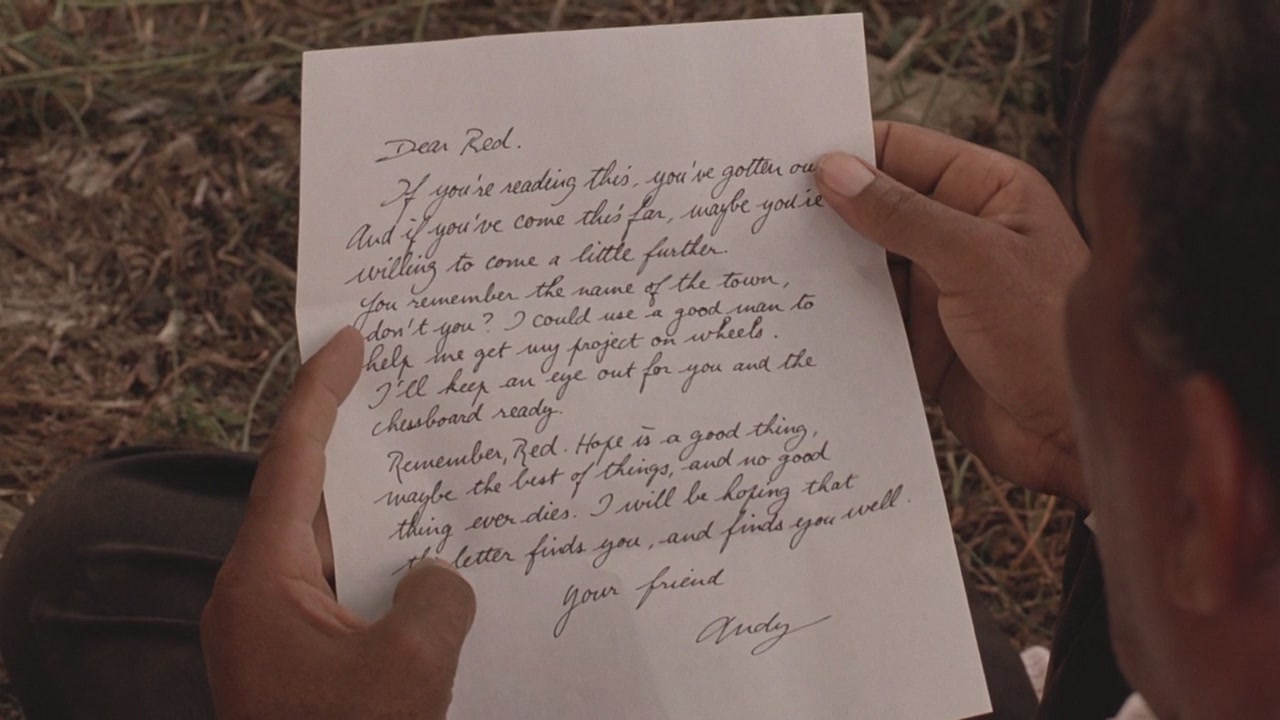 Dear Red.
If you're reading this, you've gotten ou
And if you've come this far, maybe you're
willing to come a little further.
You remember the name of the town,
don't you? I could use a good man to
help me get my project on wheels.
I'll keep an eye out for you and the
chessboard ready.
Remember, Red. Hope is a good thing,
maybe the best of things, and no good
thing ever dies. I will be hoping that
this letter finds you, and finds you well.
Your friend
Andy